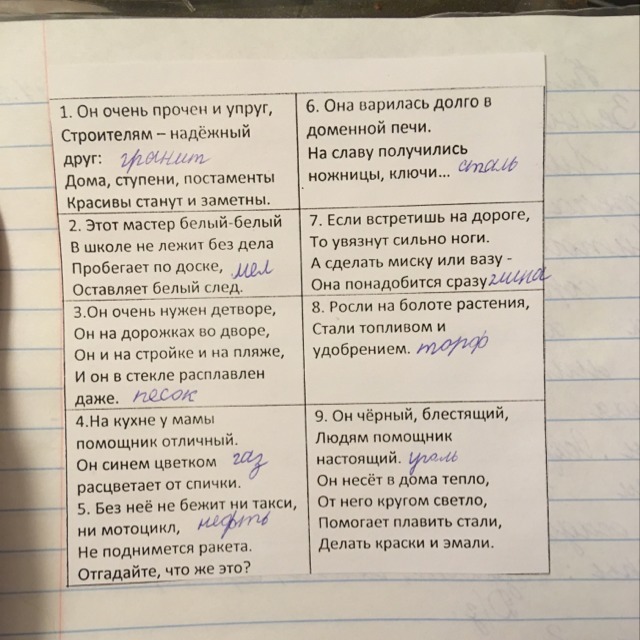 1. Он очень прочен и упруг,
Строителям – надёжный
друг: гранит
Дома, ступени, постаменты
Красивы станут и заметны.
2. Этот мастер белый-белый
В школе не лежит без дела
Пробегает по доске, мел
Оставляет белый след.
3.Он очень нужен детворе,
Он на дорожках во дворе,
Он и на стройке и на пляже,
И он в стекле расплавлен
даже. песок
4.На кухне у мамы
помощник отличный.
Он синем цветком газ
расцветает от спички.
5. Без неё не бежит ни такси,
ни мотоцикл, нефть
Не поднимется ракета.
Отгадайте, что же это?
6. Она варилась долго в
доменной печи.
На славу получились
ножницы, ключи... сталь
7. Если встретишь на дороге,
То увязнут сильно ноги.
А сделать миску или вазу -
Она понадобится сразу глина
8. Росли на болоте растения,
Стали топливом и
удобрением. торф
9. Он чёрный, блестящий,
Людям помощник
настоящий. уголь
Он несёт в дома тепло,
От него кругом светло,
Помогает плавить стали,
Делать краски и эмали.